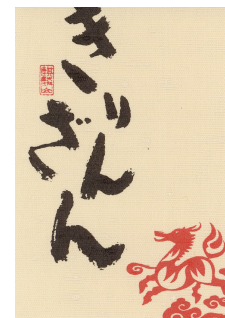 きりん
ざん